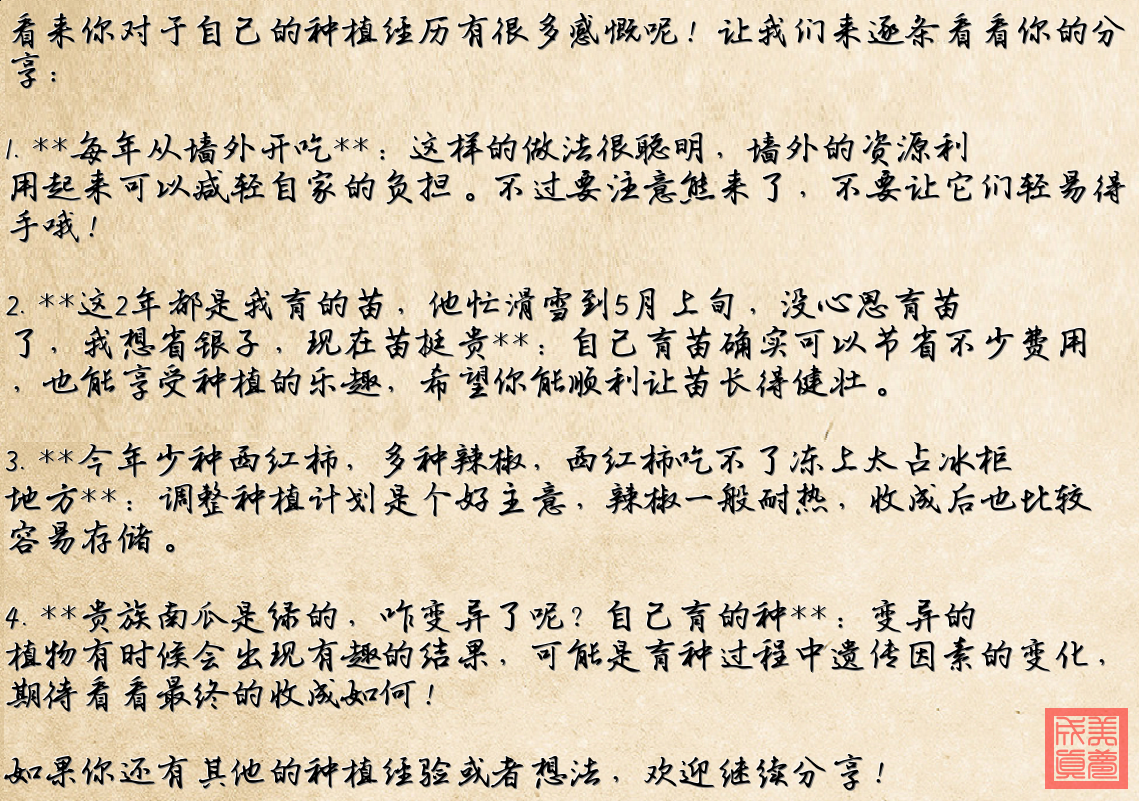 看来你对于自己的种植经历有很多感慨呢！让我们来逐条看看你的分
享：
1. **每年从墙外开吃**：这样的做法很聪明，墙外的资源利
用起来可以减轻自家的负担。不过要注意熊来了，不要让它们轻易得
手哦！
2. **这2年都是我育的苗，他忙滑雪到5月上旬，没心思育苗
了，我想省银子，现在苗挺贵**：自己育苗确实可以节省不少费用
，也能享受种植的乐趣，希望你能顺利让苗长得健壮。
3. **今年少种西红柿，多种辣椒，西红柿吃不了冻上太占冰柜
地方**：调整种植计划是个好主意，辣椒一般耐热，收成后也比较
容易存储。
4. **贵族南瓜是绿的，咋变异了呢？自己育的种**：变异的
植物有时候会出现有趣的结果，可能是育种过程中遗传因素的变化，
期待看看最终的收成如何！
如果你还有其他的种植经验或者想法，欢迎继续分享！
美梦
成真